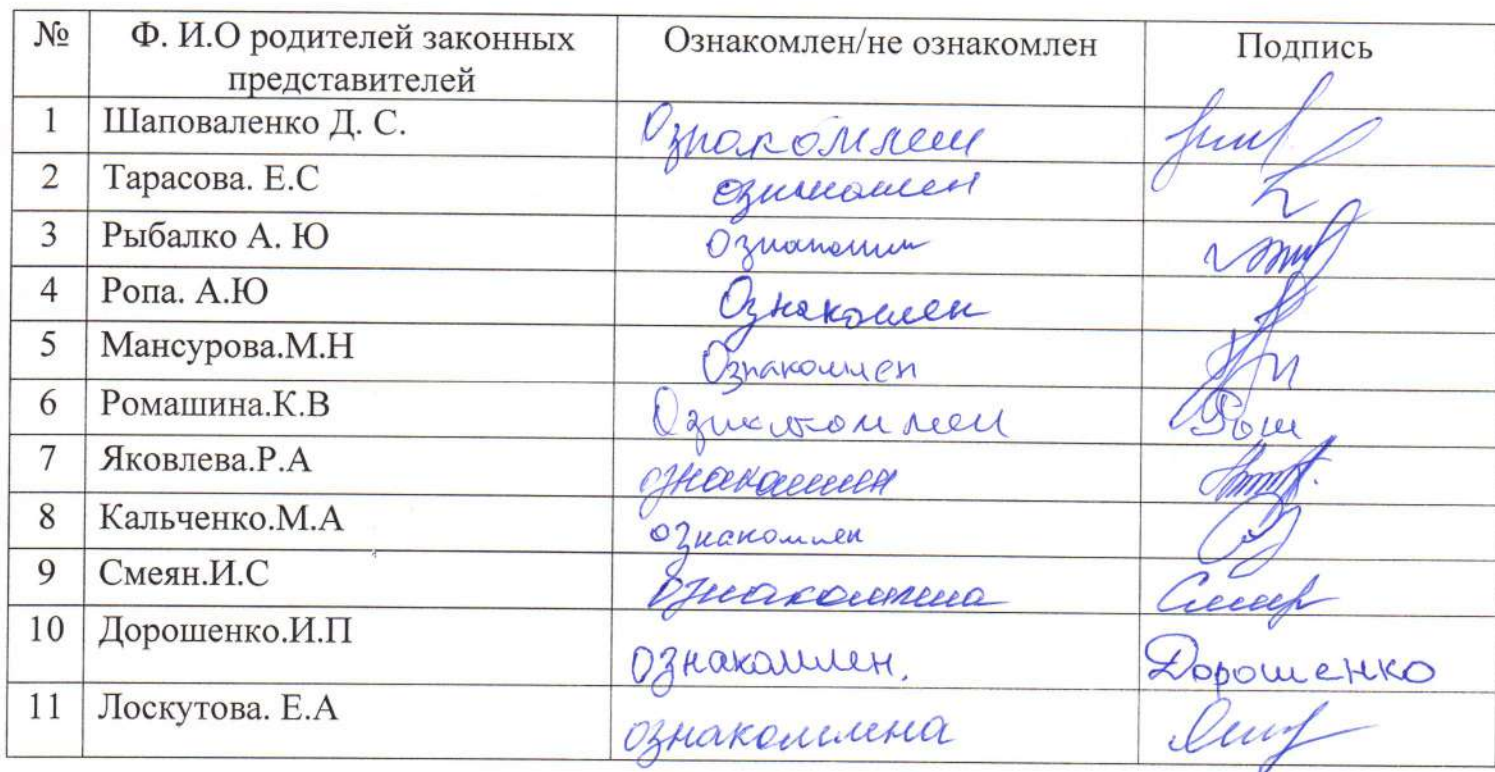 № Ф. И.О родителей законных Ознакомлен/не ознакомлен Подпись
представителей
1 Шаповаленко Д. С. Ознакомлен
2 Тарасова. Е.С ознакомлен
3 Рыбалко А. Ю
4 Ропа. А.Ю Ознакомлен
5 Мансурова.М.Н Ознакомлен
6 Ромашина.К.В Ознакомлен
7 Яковлева.Р.А ознакомлен
8 Кальченко.М.А ознакомлен
9 Смеян.И.С ознакомлена
10 Дорошенко.И.П ознакомлен. Дорошенко
11 Лоскутова. Е.А ознакомлена